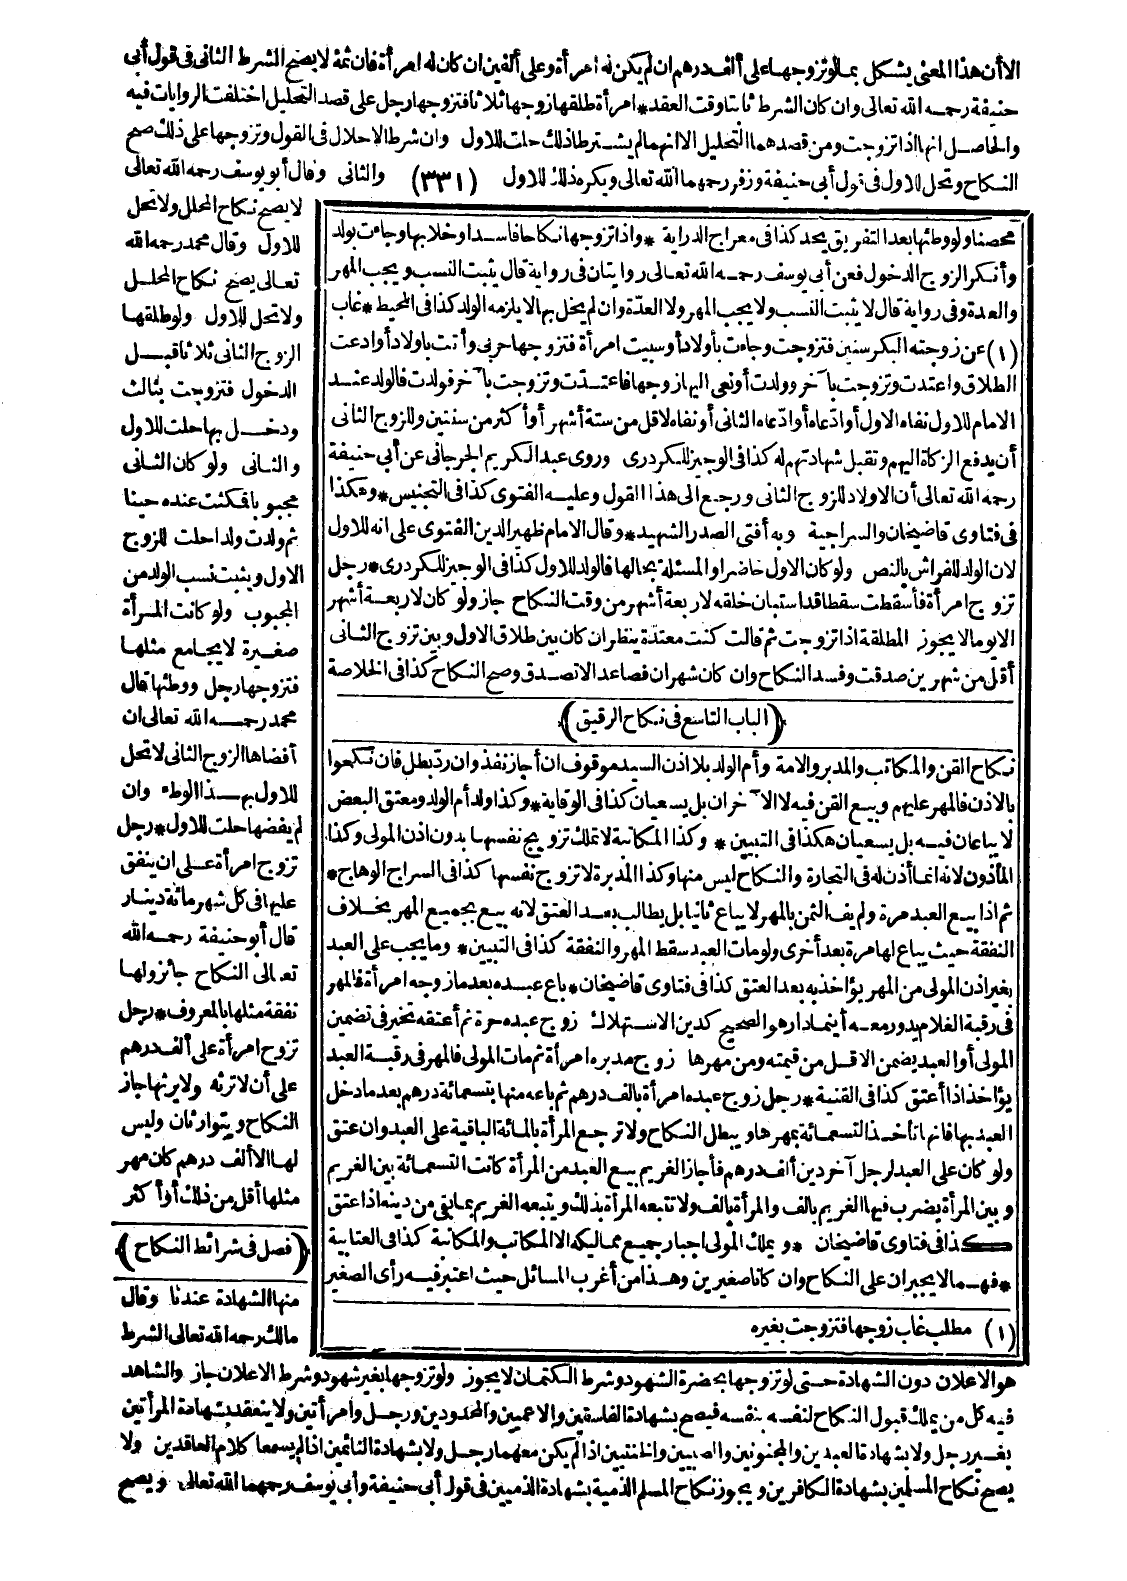 الا أن هذا المعنى يشكل بما لو تزوجها على ألف درهم ان لم يكن له امرأة وعلى ألفين ان كان له امرأة فان ثمة لا يصح الشرط الثانى فى قول أبى
حنيفة رحمه الله تعالى وان كان الشرط ثابتا وقت العقد * امرأة طلقها زوجها ثلاثا فتزوجها رجل على قصد التحليل اختلفت الروايات فيه
والحاصل انها اذا تزوجت ومن قصدهما التحليل الا انهما لم يشترطا ذلك حلت للاول وان شرط الاحلال فى القول وتزوجها على ذلك صح
النكاح وتحل للاول فى قول أبى حنيفة وزفر رحمهما الله تعالى ويكره ذلك للاول (٣٣١) والثانى وقال أبو يوسف رحمه الله تعالى
لا يصح نكاح المحلل ولا تحل
للاول وقال محمد رحمه الله
تعالى يصح نكاح المحلل
ولا تحل للاول ولو طلقها
الزوج الثانى ثلاثا قبل
الدخول فتزوجت بثالث
ودخل بها حلت للاول
والثانى ولو كان الثانى
مجبوبا فمكثت عنده حينا
ثم ولدت ولدا حلت للزوج
الاول ويثبت نسب الولد من
المجبوب ولو كانت المرأة
صغيرة لا يجامع مثلها
فتزوجها رجل ووطئها قال
محمد رحمه الله تعالى ان
أفضاها الزوج الثانى لا تحل
للاول بهذا الوطء وان
لم يفضها حلت للاول * رجل
تزوج امرأة على ان ينفق
عليها فى كل شهر مائة دينار
قال أبو حنيفة رحمه الله
تعالى النكاح جائز ولها
نفقة مثلها بالمعروف * رجل
تزوج امرأة على ألف درهم
على أن لا ترثه ولا يرثها جاز
النكاح ويتوارثان وليس
لها الا ألف درهم كان مهر
مثلها أقل من ذلك أو أكثر
(فصل فى شرائط النكاح)
منها الشهادة عندنا وقال
مالك رحمه الله تعالى الشرط
محصنا ولو وطئها بعد التفريق يحد كذا فى معراج الدراية * واذا تزوجها نكاحا فاسدا وخلا بها وجاءت بولد
وأنكر الزوج الدخول فعن أبى يوسف رحمه الله تعالى روايتان فى رواية قال يثبت النسب ويجب المهر
والعدة وفى رواية قال لا يثبت النسب ولا يجب المهر ولا العدّة وان لم يخل بها لا يلزمه الولد كذا فى المحيط * غاب
(١) عن زوجته البكر سنين فتزوجت وجاءت بأولاد أو سبيت امرأة فتزوجها حربى وأتت باولاد أو ادعت
الطلاق واعتدت وتزوجت بآخر وولدت أو نعى اليها زوجها فاعتدت وتزوجت بآخر فولدت فالولد عند
الامام للاول نفاه الاول أو ادّعاه أو ادّعاه الثانى أو نفاه لاقل من ستة أشهر أو أكثر من سنتين وللزوج الثانى
أن يدفع الزكاة اليهم وتقبل شهادتهم له كذا فى الوجيز للكردرى وروى عبد الكريم الجرجانى عن أبى حنيفة
رحمه الله تعالى أن الاولاد للزوج الثانى ورجع الى هذا القول وعليه الفتوى كذا فى التجنيس * وهكذا
فى فتاوى قاضيخان والسراجية وبه أفتى الصدر الشهيد * وقال الامام ظهير الدين الفتوى على انه للاول
لان الولد للفراش بالنص ولو كان الاول حاضرا والمسئلة بحالها فالولد للاول كذا فى الوجيز للكردرى * رجل
تزوج امرأة فأسقطت سقطا قد استبان خلقه لاربعة أشهر من وقت النكاح جاز ولو كان لاربعة أشهر
الا يوما لا يجوز المطلقة اذا تزوجت ثم قالت كنت معتدّة ينظر ان كان بين طلاق الاول وبين تزوج الثانى
أقل من شهرين صدقت وفسد النكاح وان كان شهران فصاعدا لا تصدق وصح النكاح كذا فى الخلاصة
(الباب التاسع فى نكاح الرقيق)
نكاح القن والمكاتب والمدبر والامة وأم الولد بلا اذن السيد موقوف ان أجاز نفذ وان رد بطل فان نكحوا
بالاذن فالمهر عليهم وبيع القن فيه لا الآخران بل يسعيان كذا فى الوقاية * وكذا ولد أم الولد ومعتق البعض
لا يباعان فيه بل يسعيان هكذا فى التبيين * وكذا المكاتبة لا تملك تزويج نفسها بدون اذن المولى وكذا
المأذون لانه انما أذن له فى التجارة والنكاح ليس منها وكذا المدبرة لا تزوج نفسها كذا فى السراج الوهاج *
ثم اذا بيع العبد مرة ولم يف الثمن بالمهر لا يباع ثانيا بل يطالب بعد العتق لانه بيع بجميع المهر بخلاف
النفقة حيث يباع لها مرة بعد أخرى ولو مات العبد سقط المهر والنفقة كذا فى التبيين * وما يجب على العبد
بغير اذن المولى من المهر يؤاخذ به بعد العتق كذا فى فتاوى قاضيخان * باع عبده بعد ما زوجه امرأة فالمهر
فى رقبة الغلام يدور معه أينما دار هو الصحيح كدين الاستهلاك زوج عبده حرة ثم أعتقه تخير فى تضمين
المولى أو العبد يضمن الاقل من قيمته ومن مهرها زوج مدبره امرأة ثم مات المولى فالمهر فى رقبة العبد
يؤاخذ اذا أعتق كذا فى القنية * رجل زوج عبده امرأة بالف درهم ثم باعه منها بتسعمائة درهم بعد ما دخل
العبد بها فانها تأخذ التسعمائة بمهرها ويبطل النكاح ولا ترجع المرأة بالمائة الباقية على العبد وان عتق
ولو كان على العبد لرجل آخر دين ألف درهم فأجاز الغريم بيع العبد من المرأة كانت التسعمائة بين الغريم
وبين المرأة يضرب فيها الغريم بالف والمرأة بالف ولا تتبعه المرأة بذلك ويتبعه الغريم بما بقى من دينه اذا عتق
كذا فى فتاوى قاضيخان * ويملك المولى اجبار جميع مماليكه الا المكاتب والمكاتبة كذا فى العتابية
* فهما لا يجبران على النكاح وان كانا صغيرين وهذا من أغرب المسائل حيث اعتبر فيه رأى الصغير
(١) مطلب غاب زوجها فتزوجت بغيره
هو الاعلان دون الشهادة حتى لو تزوجها بحضرة الشهود وشرط الكتمان لا يجوز ولو تزوجها بغير شهود وشرط الاعلان جاز والشاهد
فيه كل من يملك قبول النكاح لنفسه بنفسه فيصح بشهادة الفاسقين والاعميين والمحدودين ورجل وامرأتين ولا ينعقد بشهادة المرأتين
بغير رجل ولا بشهادة العبدين والمجنونين والصبيين والخنثيين اذا لم يكن معهما رجل ولا بشهادة النائمين اذا لم يسمعا كلام العاقدين ولا
يصح نكاح المسلمين بشهادة الكافرين ويجوز نكاح المسلم الذمية بشهادة الذميين فى قول أبى حنيفة وأبى يوسف رحمهما الله تعالى ويصح